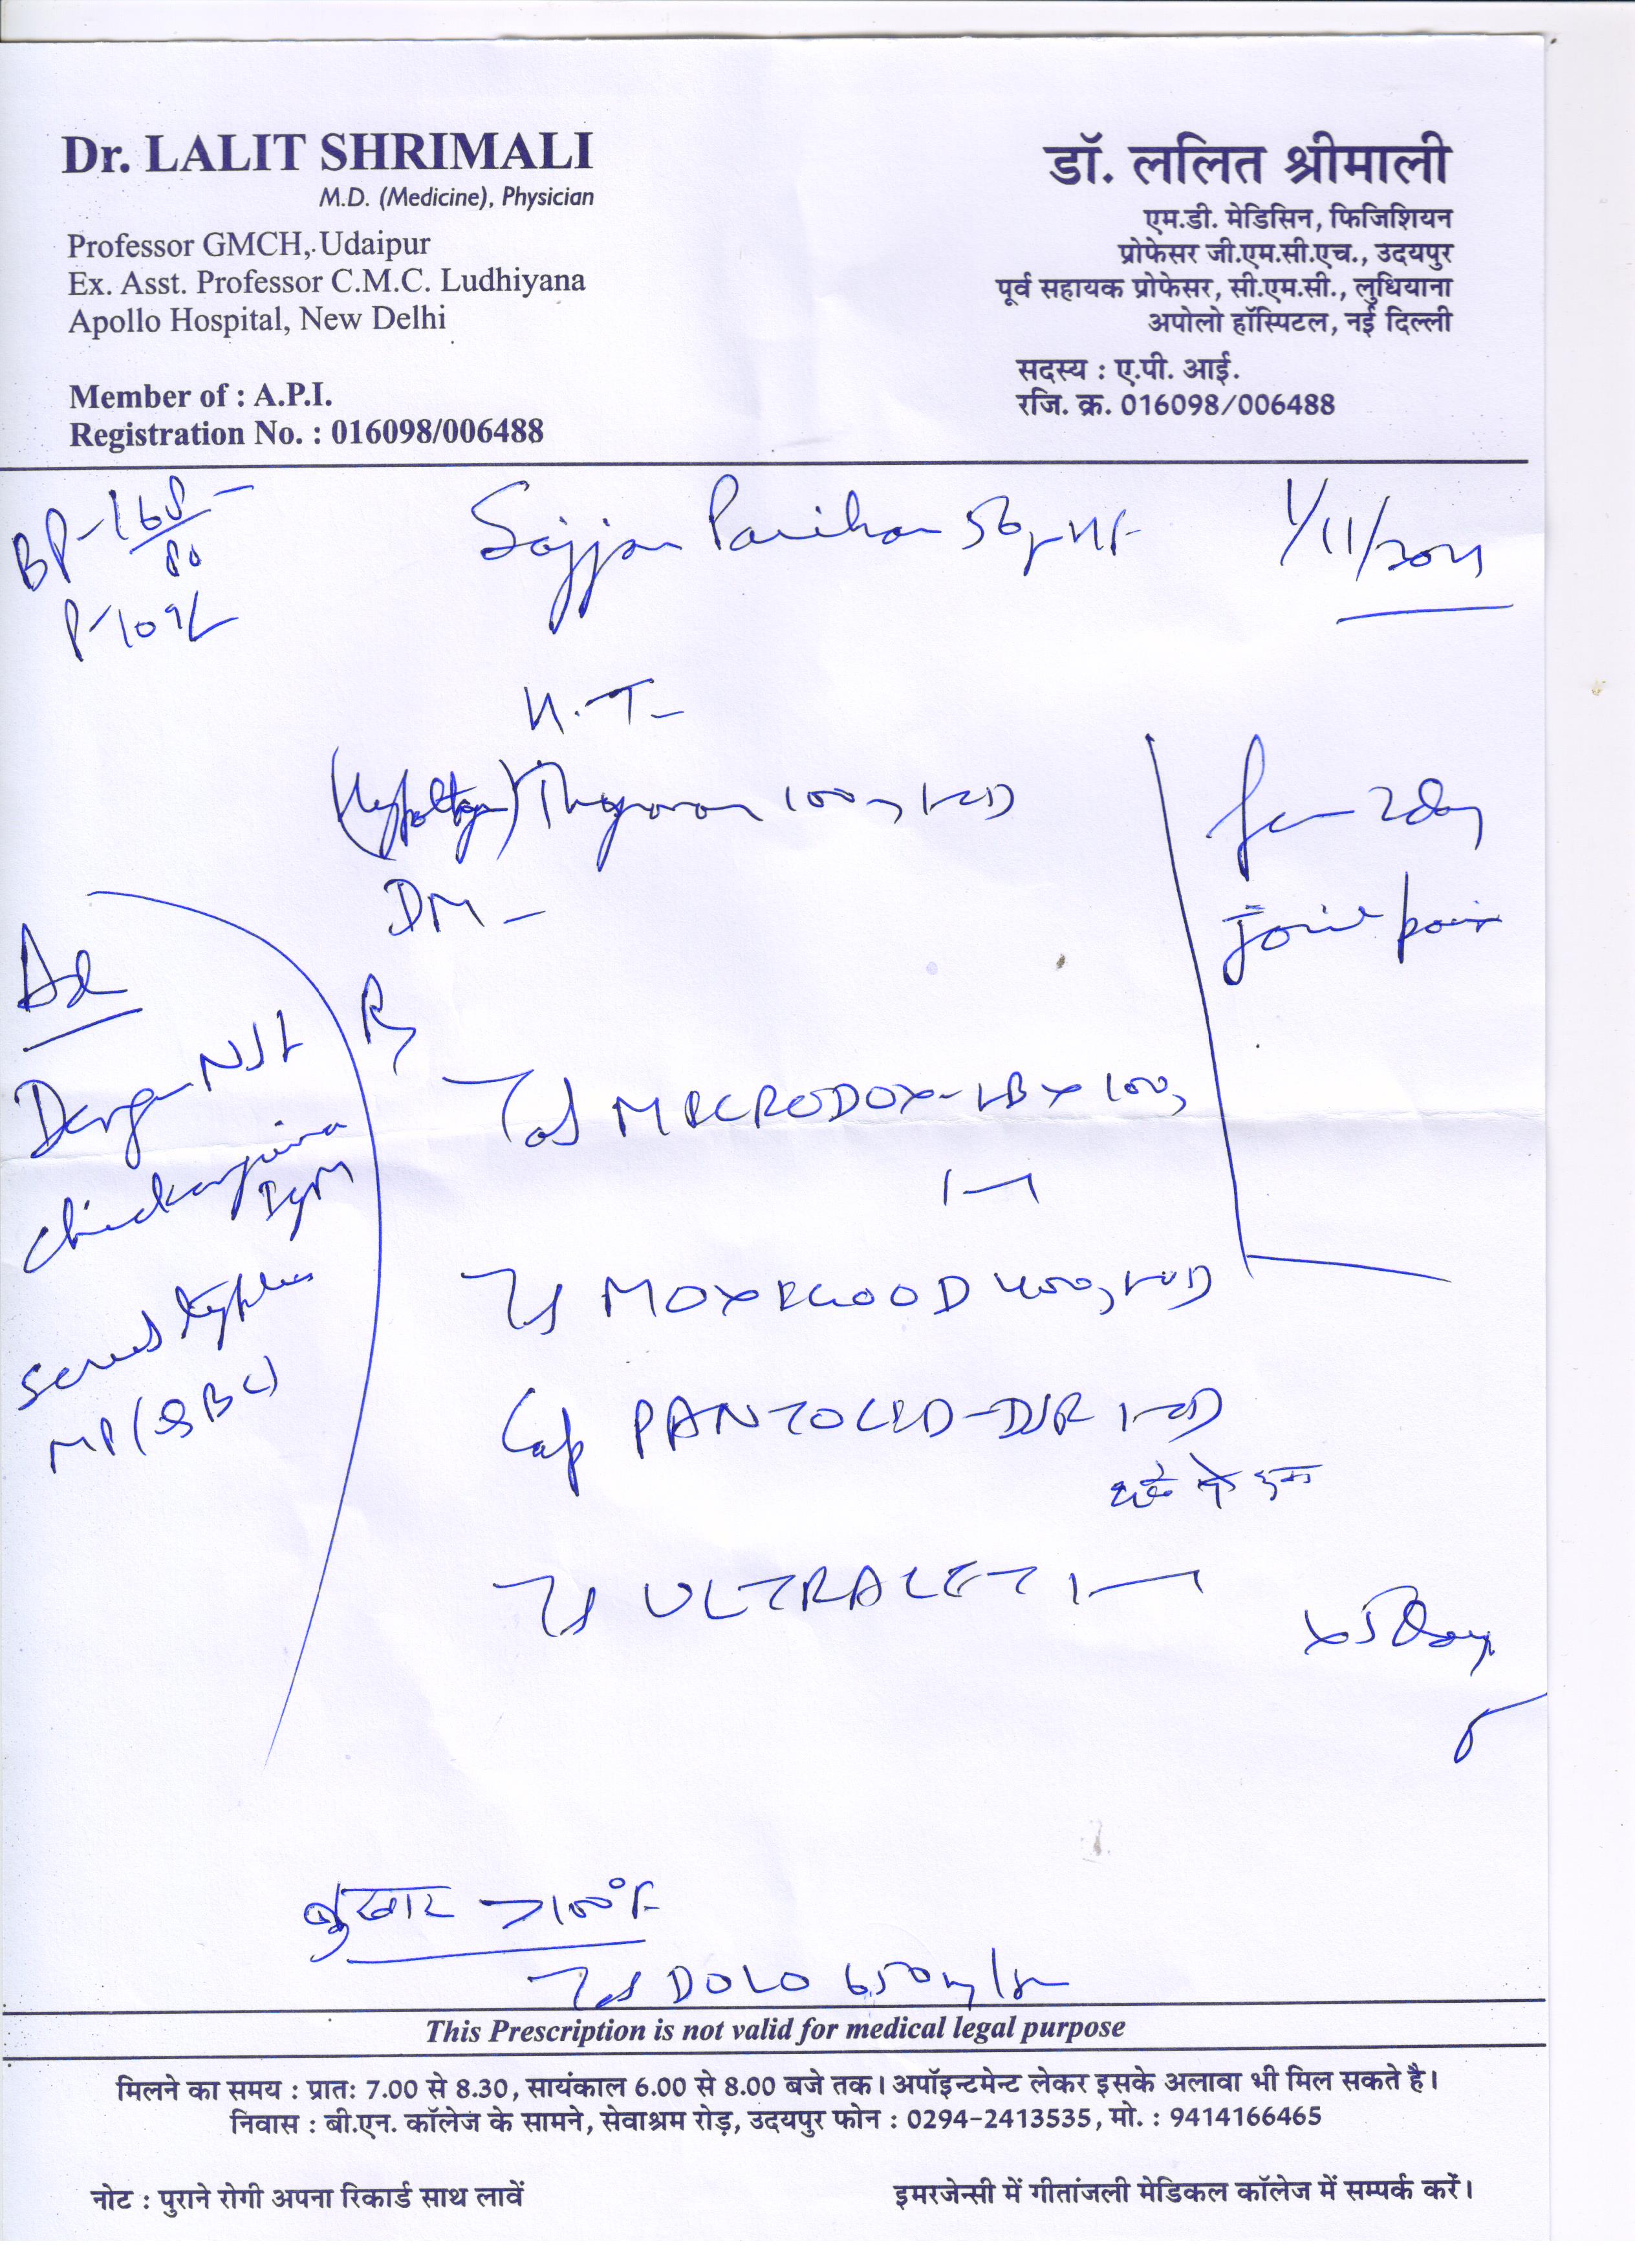 Dr. LALIT SHRIMALI
M.D. (Medicine), Physician
Professor GMCH, Udaipur
Ex. Asst. Professor C.M.C. Ludhiyana
Apollo Hospital, New Delhi
Member of : A.P.I.
Registration No. : 016098/006488
डॉ. ललित श्रीमाली
एम.डी. मेडिसिन, फिजिशियन
प्रोफेसर जी.एम.सी.एच., उदयपुर
पूर्व सहायक प्रोफेसर, सी.एम.सी., लुधियाना
अपोलो हॉस्पिटल, नई दिल्ली
सदस्य : ए.पी. आई.
रजि. क्र. 016098/006488
BP-
80
P-109/
Sajjan Parihar 56
1/11/2021
H.T-
100
DM -
2 day
Joint pain
Ad
Dengue NS1
Chickengunia
IgM
Scrub typhus
MP(QBC)
Rx
Tab MACRODOX-LB x 100
1-1
Tab MOX 400
Cap PANTOCID-DSR 1-OD
Tab ULTRACET 1-1
x 5 Day
बुखार >100°F
Tab DOLO 650mg
This Prescription is not valid for medical legal purpose
मिलने का समय : प्रातः 7.00 से 8.30, सायंकाल 6.00 से 8.00 बजे तक। अपॉइन्टमेन्ट लेकर इसके अलावा भी मिल सकते है।
निवास : बी.एन. कॉलेज के सामने, सेवाश्रम रोड़, उदयपुर फोन : 0294-2413535, मो. : 9414166465
नोट : पुराने रोगी अपना रिकार्ड साथ लावें
इमरजेन्सी में गीतांजली मेडिकल कॉलेज में सम्पर्क करें।